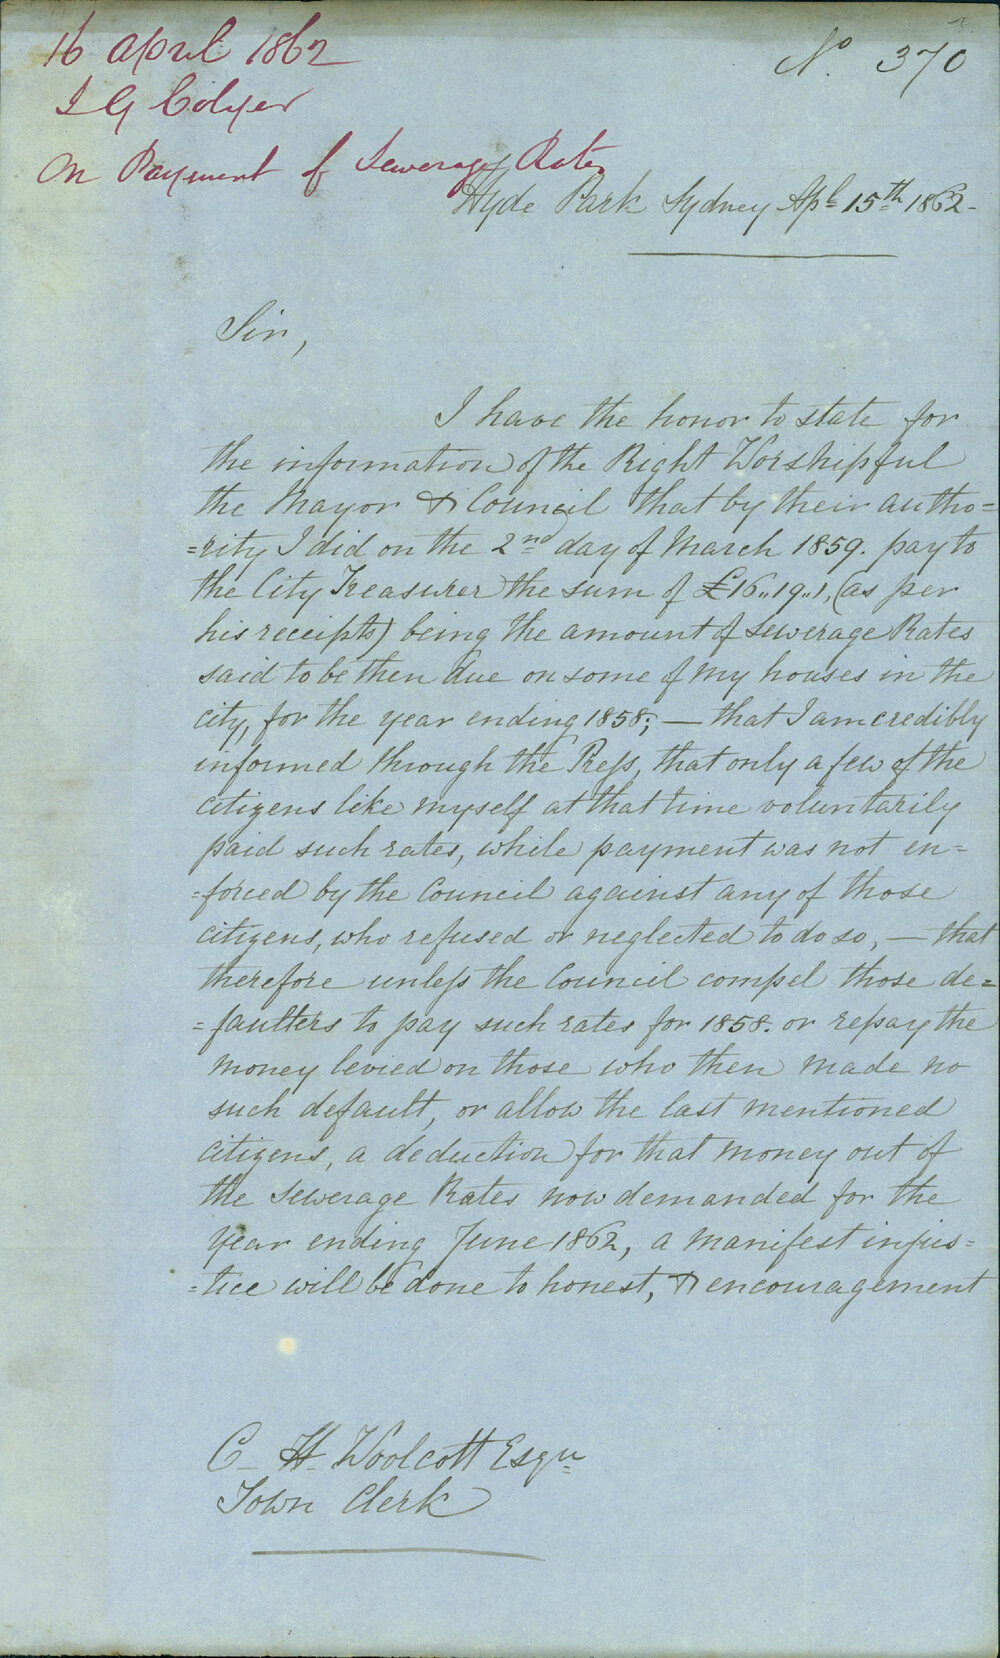 16 April 1862
No. 370
J G Colyer
On Payment of Sewerage Rates
Hyde Park Sydney Apl 15th 1862-
Sir,
I have the honor to state for
the information of the Right Worshipful
the Mayor & Council that by their autho=
=rity I did on the 2nd day of March 1859. pay to
the City Treasurer the sum of £16,,19,,1, (as per
his receipts) being the amount of Sewerage Rates
said to be then due on some of my houses in the
city, for the year ending 1858; — that I am credibly
informed through the Press, that only a few of the
citizens like myself at that time voluntarily
paid such rates, while payment was not en=
=forced by the Council against any of those
citizens, who refused or neglected to do so, — that
therefore unless the Council compel those de=
=faulters to pay such rates for 1858. or repay the
money levied on those who then made no
such default, or allow the last mentioned
citizens, a deduction for that money out of
the Sewerage Rates now demanded for the
year ending June 1862, a manifest injus=
=tice will be done to honest, & encouragement
C- H- Woolcott Esqr
Town Clerk